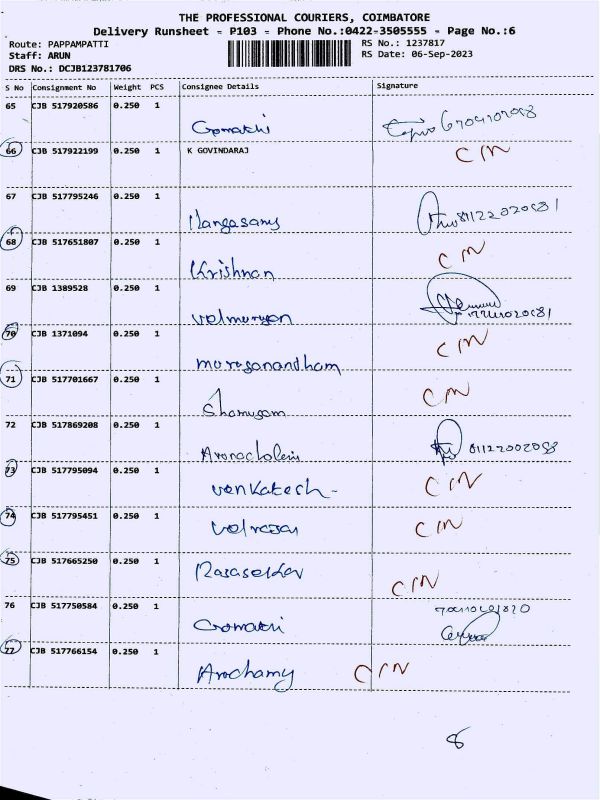 THE PROFESSIONAL COURIERS, COIMBATORE
Delivery Runsheet - P103 - Phone No.:0422-3505555 - Page No.:6
Route: PAPPAMPATTI RS No.: 1237817
Staff: ARUN RS Date: 06-Sep-2023
DRS No.: DCJB123781706
S No Consignment No Weight PCS Consignee Details Signature
65 CJB 517920586 0.250 1
Gomathi
66 CJB 517922199 0.250 1 K GOVINDARAJ CIN
67 CJB 517795246 0.250 1
Rangasamy
68 CJB 517651807 0.250 1 CIN
Krishnan
69 CJB 1389528 0.250 1
velmurugan
70 CJB 1371094 0.250 1 CIN
muruganandham
71 CJB 517701667 0.250 1 CIN
Shamugam
72 CJB 517869208 0.250 1
73 CJB 517795094 0.250 1 venkatesh CIN
74 CJB 517795451 0.250 1 CIN
75 CJB 517665250 0.250 1
CIN
76 CJB 517750584 0.250 1
Gomathi
77 CJB 517766154 0.250 1
Arochamy CIN
8